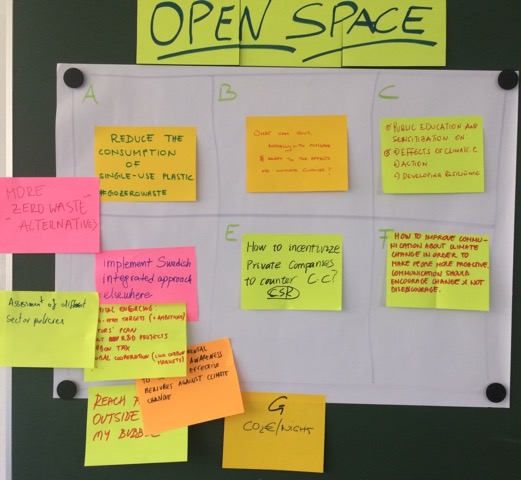 OPEN SPACE
A
B
C
REDUCE THE
CONSUMPTION
OF
SINGLE-USE PLASTIC
#GOZEROWASTE
WHAT CAN YOUR
MITIGATE
& ADAPT TO THE EFFECTS
OF CLIMATE CHANGE?
PUBLIC EDUCATION AND
SENSITIZATION ON
EFFECTS OF CLIMATE C
ACTION
DEVELOPING RESILIENCE
MORE
ZERO WASTE
ALTERNATIVES
implement Swedish
integrated approach
elsewhere
E
How to incentivize
Private Companies
to counter C.C?
CSR
F
HOW TO IMPROVE COMMU-
NICATION ABOUT CLIMATE
CHANGE IN ORDER TO
MAKE PEOPLE MORE PROACTIVE.
COMMUNICATION SHOULD
ENCOURAGE CHANGE & NOT
DISENCOURAGE.
Assessment of different
Sector policies
TARGETS (+AMBITION)
PLAN
R&D PROJECTS
TAX
COOPERATION
MARKETS)
AWARENESS
MEASURES AGAINST CLIMATE
CHANGE
REACH
OUTSIDE
MY BUBBLE
G
CO2€/NIGHT